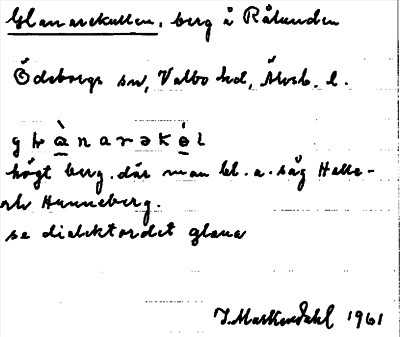 Glanarekullen, berg å Rålanden
Ödeborgs sn, Valbo hd, Älvsb. l.
högt berg. där man bl. a. såg Halle-
och Hunneberg.
se dialektordet glana
1961